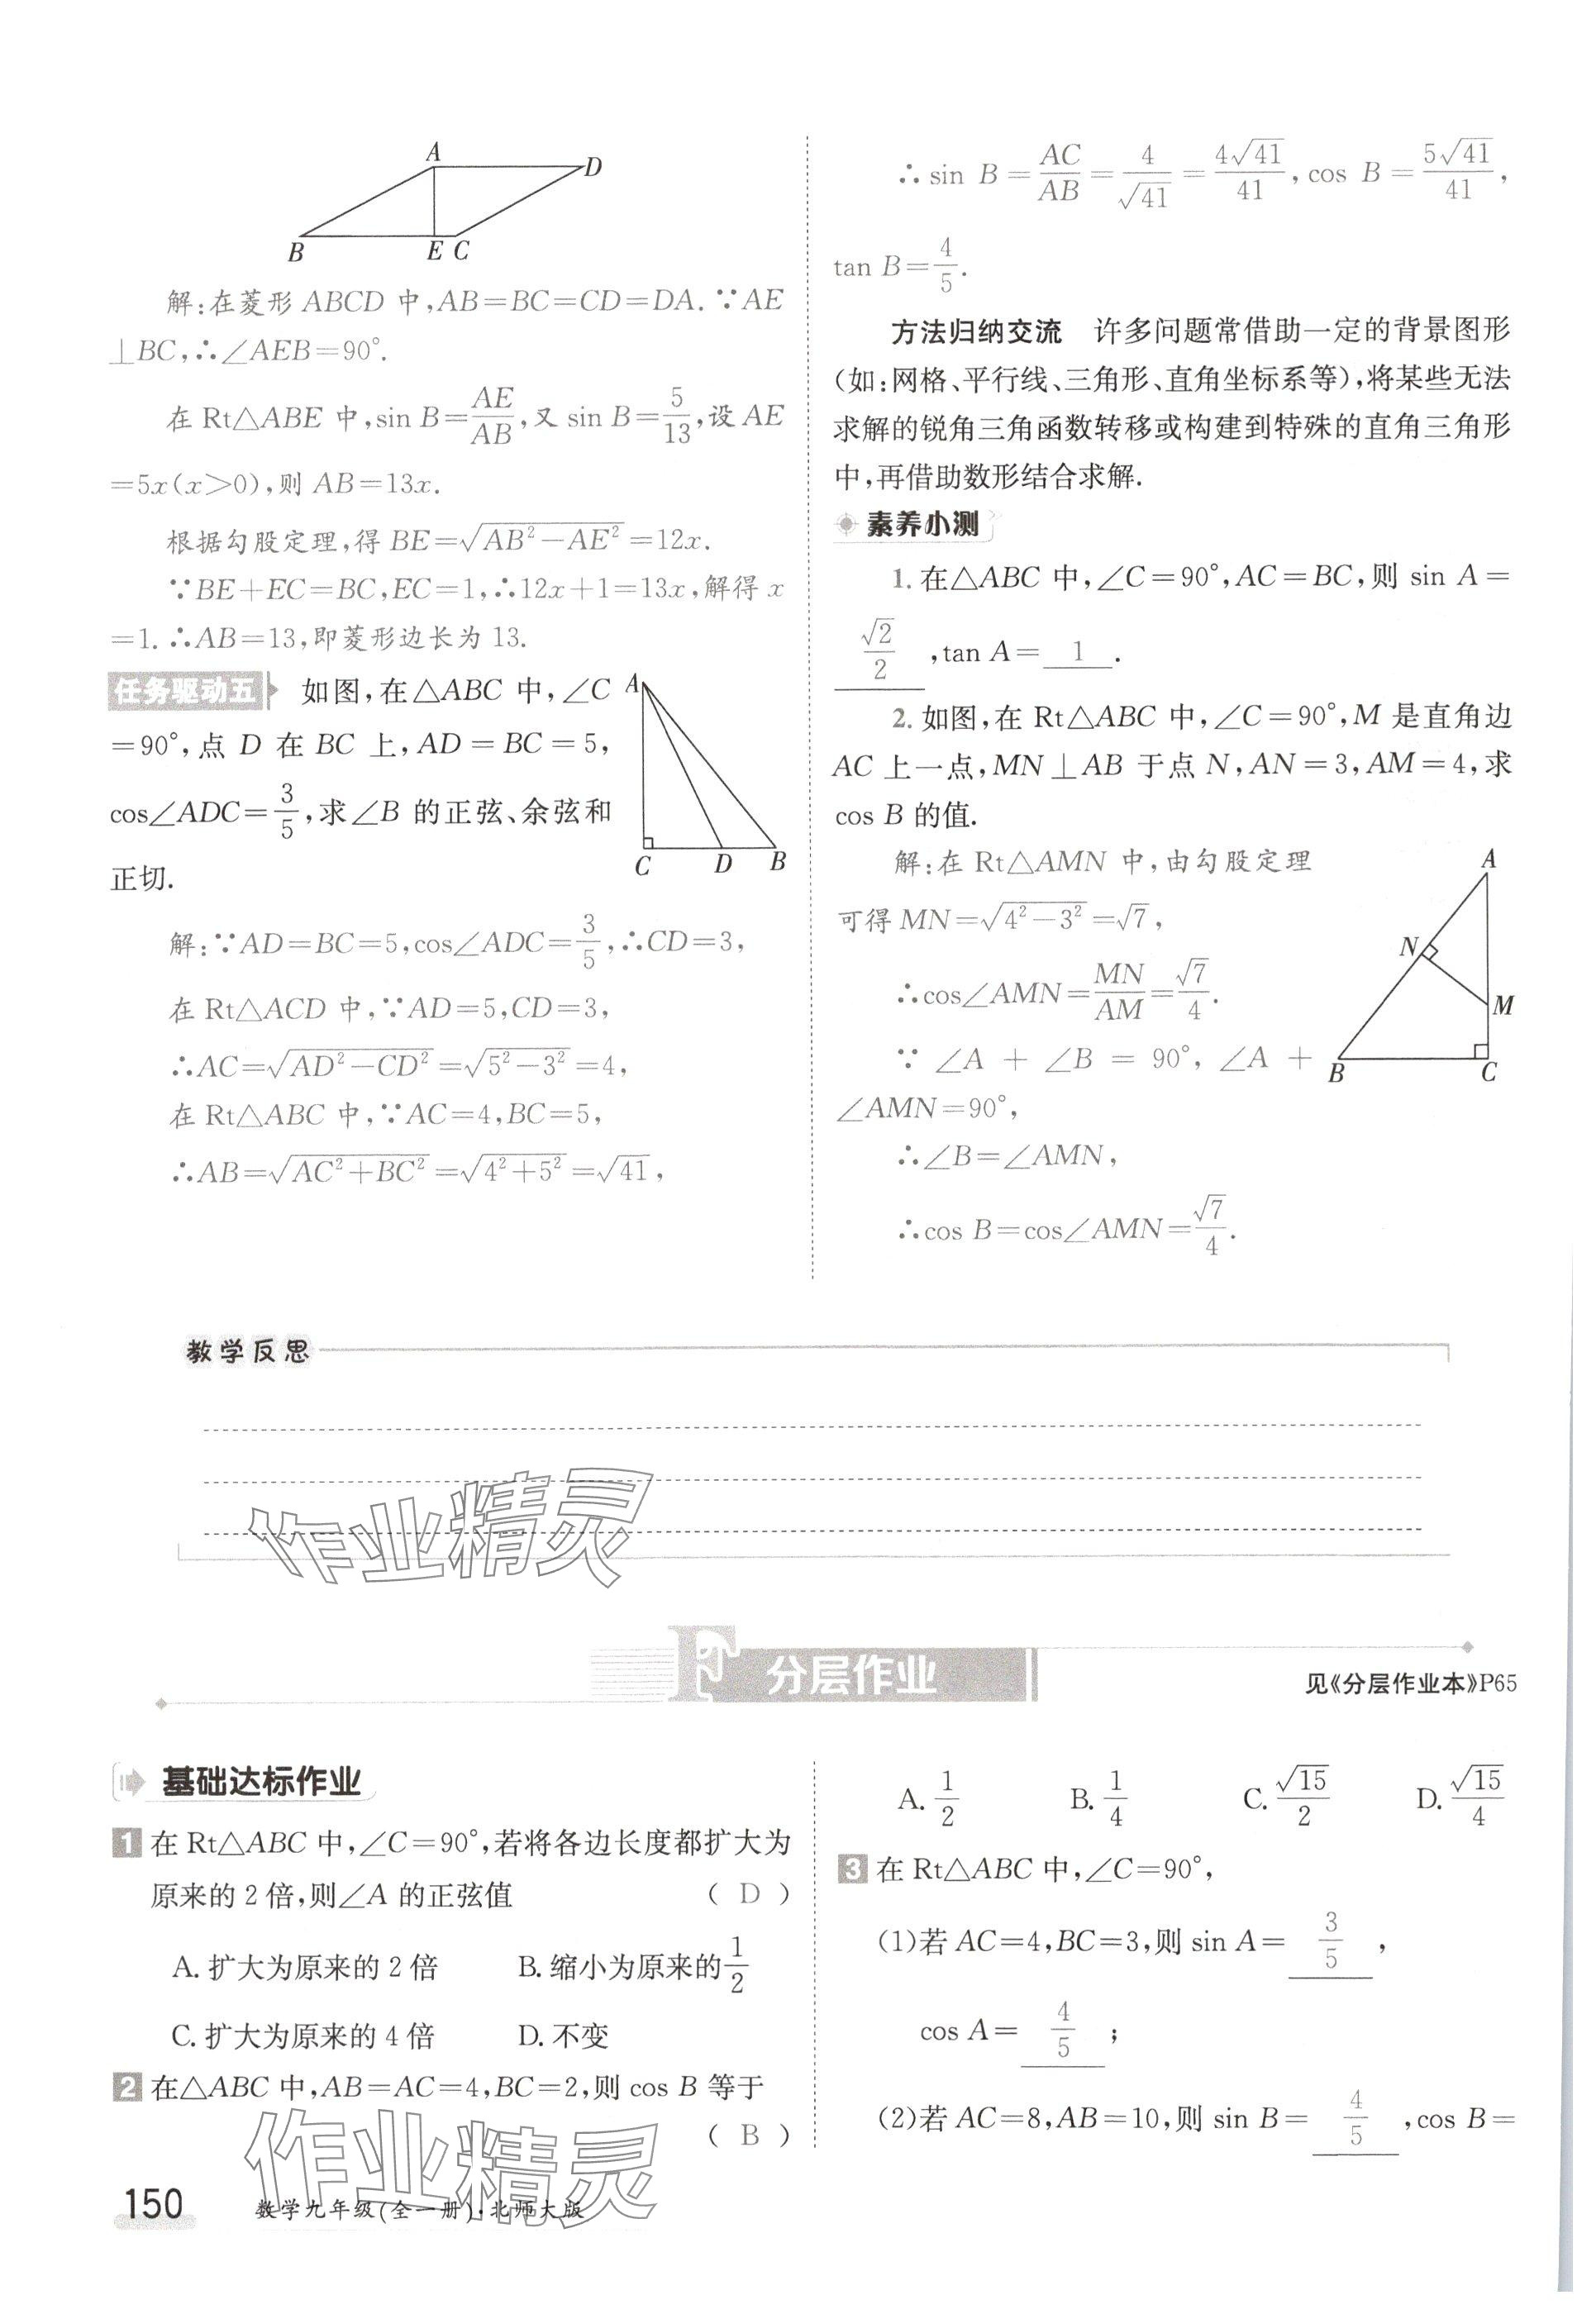 A
D
B
E C
解:在菱形 ABCD 中,AB=BC=CD=DA. ∵AE
⊥BC,∴∠AEB=90°.
在 Rt△ABE 中,sin B=AE/AB,又 sin B=5/13,设 AE
=5x(x>0),则 AB=13x.
根据勾股定理,得 BE=√(AB²-AE²)=12x.
∵BE+EC=BC,EC=1,∴12x+1=13x,解得 x
=1. ∴AB=13,即菱形边长为 13.
任务驱动五 如图,在△ABC 中,∠C
=90°,点 D 在 BC 上,AD=BC=5,
cos∠ADC=3/5,求∠B 的正弦、余弦和
正切.
A
C
D
B
解:∵AD=BC=5,cos∠ADC=3/5,∴CD=3,
在 Rt△ACD 中,∵AD=5,CD=3,
∴AC=√(AD²-CD²)=√(5²-3²)=4,
在 Rt△ABC 中,∵AC=4,BC=5,
∴AB=√(AC²+BC²)=√(4²+5²)=√41,
∴sin B=AC/AB=4/√41=4√41/41,cos B=5√41/41,
tan B=4/5.
方法归纳交流 许多问题常借助一定的背景图形
(如:网格、平行线、三角形、直角坐标系等),将某些无法
求解的锐角三角函数转移或构建到特殊的直角三角形
中,再借助数形结合求解.
素养小测
1.在△ABC 中,∠C=90°,AC=BC,则 sin A=
√2/2,tan A=1.
2.如图,在 Rt△ABC 中,∠C=90°,M 是直角边
AC 上一点,MN⊥AB 于点 N,AN=3,AM=4,求
cos B 的值.
解:在 Rt△AMN 中,由勾股定理
可得 MN=√(4²-3²)=√7,
∴cos∠AMN=MN/AM=√7/4.
∵∠A+∠B=90°,∠A+
∠AMN=90°,
∴∠B=∠AMN,
∴cos B=cos∠AMN=√7/4.
A
N
M
B
C
教学反思
作业精灵
F 分层作业
见《分层作业本》P65
基础达标作业
1 在 Rt△ABC 中,∠C=90°,若将各边长度都扩大为
原来的 2 倍,则∠A 的正弦值 ( D )
A. 扩大为原来的 2 倍 B. 缩小为原来的1/2
C. 扩大为原来的 4 倍 D. 不变
2 在△ABC 中,AB=AC=4,BC=2,则 cos B 等于
( B )
A. 1/2 B. 1/4 C. √15/2 D. √15/4
3 在 Rt△ABC 中,∠C=90°,
(1)若 AC=4,BC=3,则 sin A=3/5,
cos A=4/5;
(2)若 AC=8,AB=10,则 sin B=4/5,cos B=
作业精灵
150 数学九年级(全一册)·北师大版